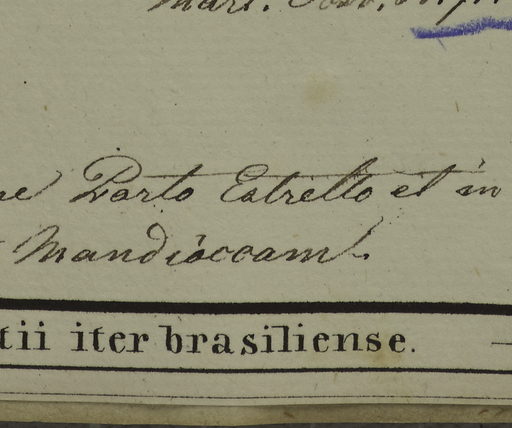 Porto Estrello et in
Mandioccam.
tii iter brasiliense.